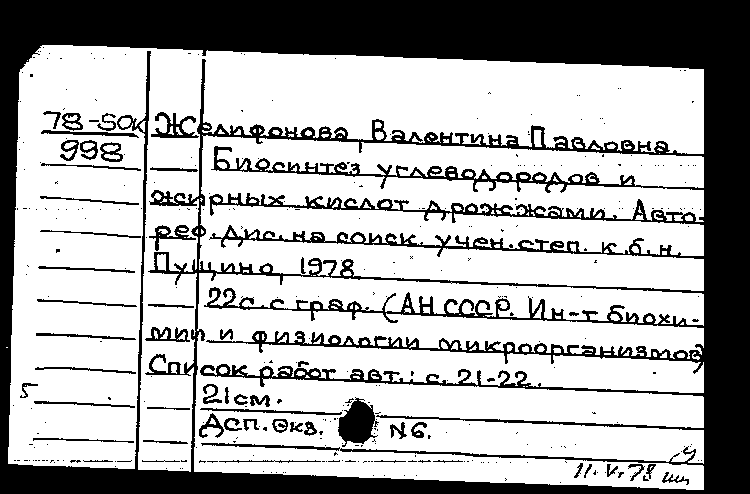 78-5ОК Желифонова, Валентина Павловна.
998
Биосинтез углеводородов и
жирных кислот дрожжами. Авто-
реф. дис. на соиск. учен. степ. к.б.н.
Пущино, 1978
22с. с граф. (АН СССР. Ин-т биохи-
мии и физиологии микроорганизмов)
Список работ авт.: с. 21-22.
5
21см.
Дсп. экз. N6.
11.V.78